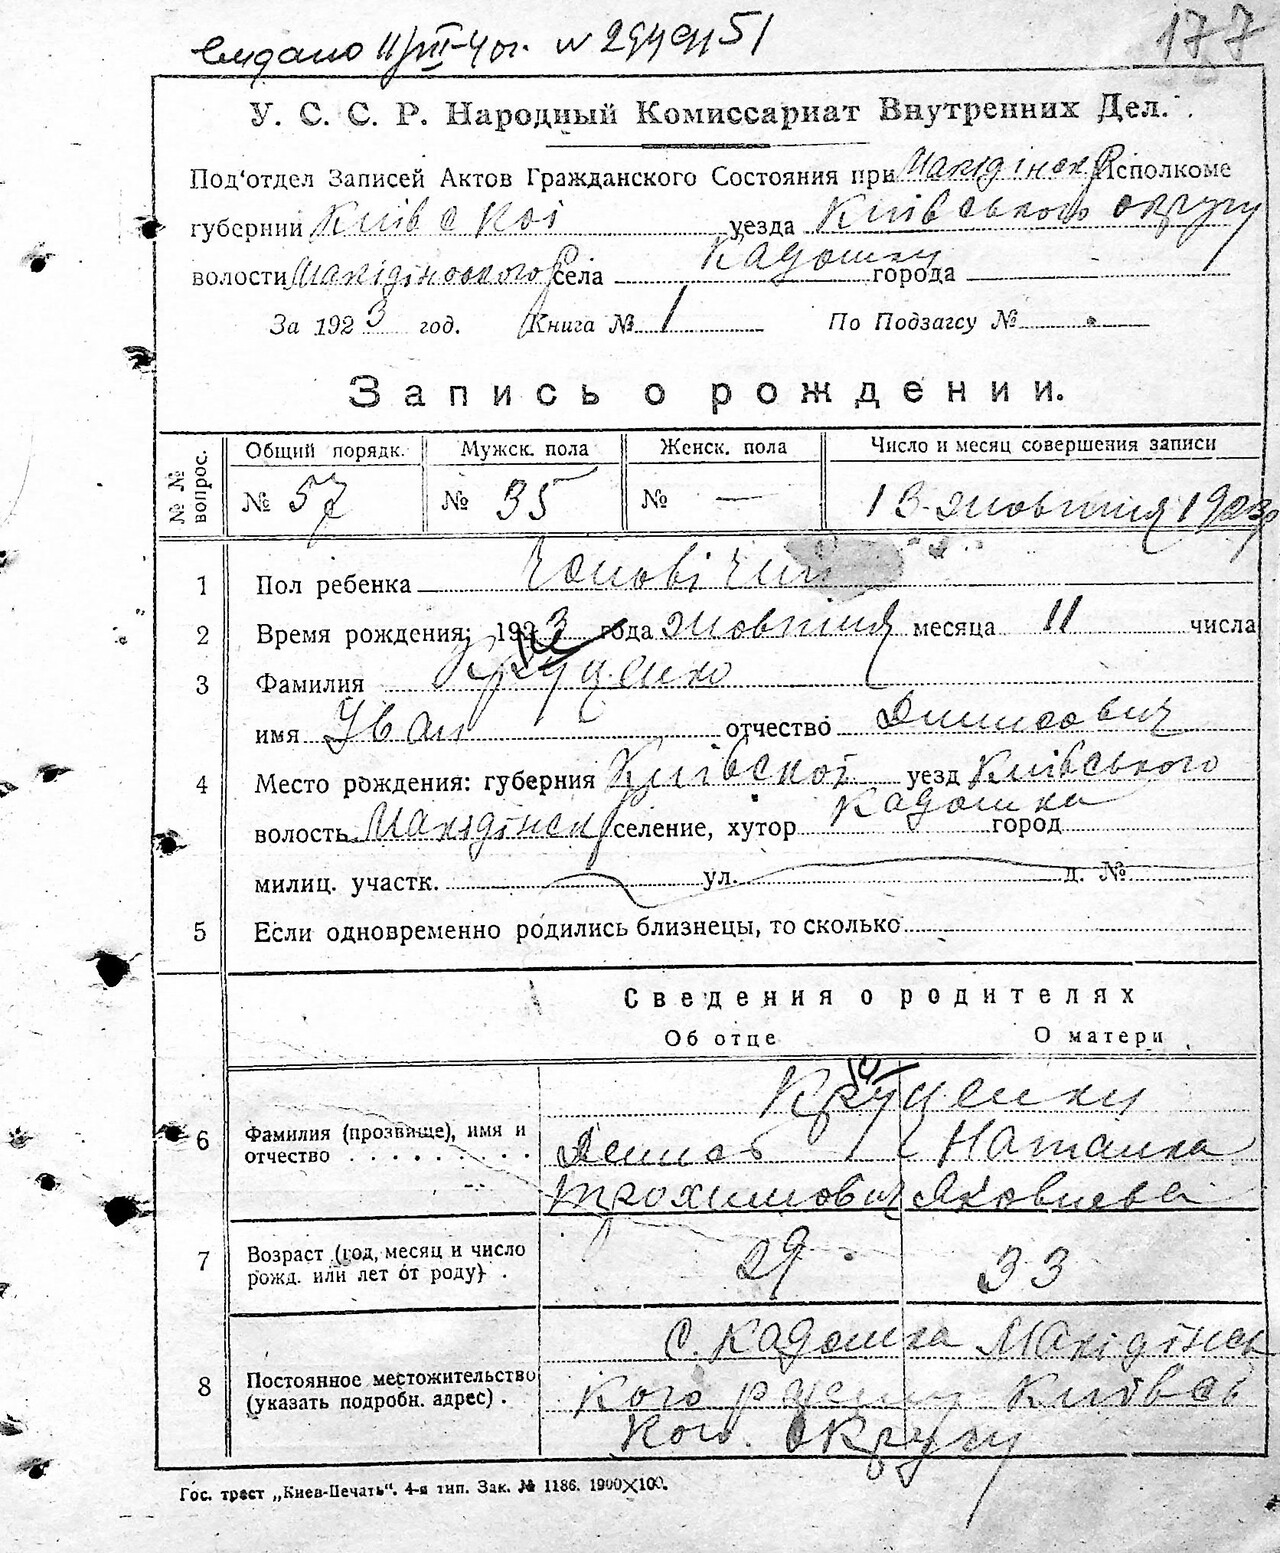 видано 11/VIII-40г. № 51
177
У. С. С. Р. Народный Комиссариат Внутренних Дел.
Под'отдел Записей Актов Гражданского Состояния при Исполкоме
губернии Київскої уезда Київського округу
волости села Кадомки города
За 1923 год. Книга № 1 По Подзагсу №
Запись о рождении.
№ № вопрос. Общий порядк. Мужск. пола Женск. пола Число и месяц совершения записи
№ 57 № 35 № — 13 жовтня 1923р
1 Пол ребенка Чоловічий
2 Время рождения: 1923 года жовтня месяца 11 числа
3 Фамилия Круценко
имя Іван отчество Денисович
4 Место рождения: губерния Київской уезд Київського
волость селение, хутор Кадомка город
милиц. участк. ул. д. №
5 Если одновременно родились близнецы, то сколько
Сведения о родителях
Об отце О матери
6 Фамилия (прозвище), имя и отчество Круценки
Денис Наталка
Трохимович Яковлева
7 Возраст (год, месяц и число рожд. или лет от роду) . 29 33
8 Постоянное местожительство (указать подробн. адрес) . С. Кадомка
кого Київсь
кого округу
Гос. трест „Киев-Печать“. 4-я тип. Зак. № 1186. 1900×100.